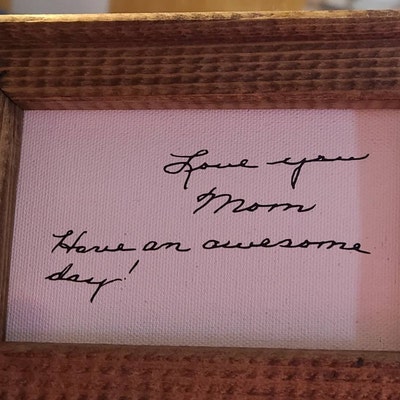 Love you
Mom
Have an awesome
day!